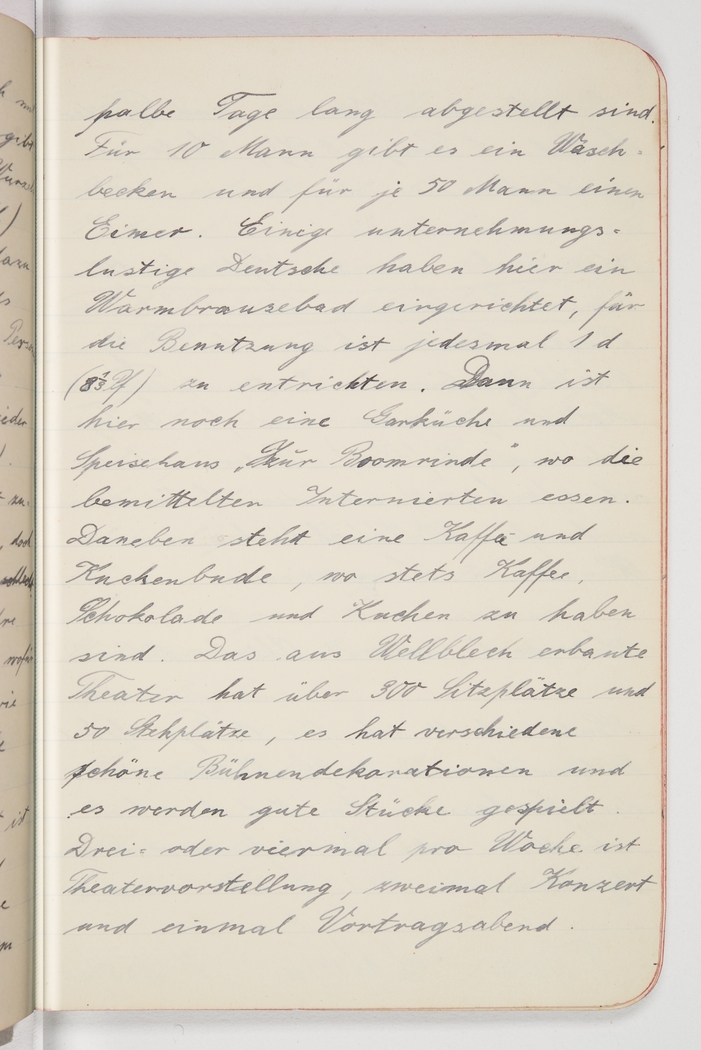 halbe Tage lang abgestellt sind.
Für 10 Mann gibt es ein Wasch-
becken und für je 50 Mann einen
Eimer. Einige unternehmungs-
lustige Deutsche haben hier ein
Warmbrausebad eingerichtet, für
die Benutzung ist jedesmal 1 d
(8⅓ ₰) zu entrichten. Dann ist
hier noch eine Garküche und
Speisehaus „Zur Boomrinde", wo die
bemittelten Internierten essen.
Daneben steht eine Kaffee und
Kuchenbude, wo stets Kaffee,
Schokolade und Kuchen zu haben
sind. Das aus Wellblech erbaute
Theater hat über 300 Sitzplätze und
50 Stehplätze, es hat verschiedene
schöne Bühnendekorationen und
es werden gute Stücke gespielt.
Drei- oder viermal pro Woche ist
Theatervorstellung, zweimal Konzert
und einmal Vortragsabend.